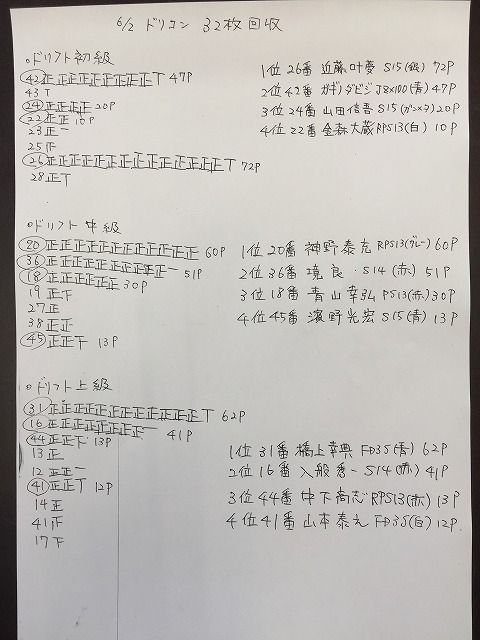 6/2 ドリコン 32枚回収
○ドリフト初級
42 正正正正正正正正正T 47P
43 T
24 正正正正 20P
22 正正 10P
23 正一
25 正
26 正正正正正正正正正正正正正正T 72P
28 正T
1位 26番 近藤叶夢 S15(銀) 72P
2位 42番 ガギノダビジ JZX100(青) 47P
3位 24番 山田信吾 S15(ガンメタ) 20P
4位 22番 金森大蔵 RPS13(白) 10P
○ドリフト中級
20 正正正正正正正正正正正正 60P
36 正正正正正正正正正正一 51P
18 正正正正正正 30P
19 正下
27 正
38 正正
45 正正下 13P
1位 20番 神野泰充 RPS13(グレー) 60P
2位 36番 境良 S14(赤) 51P
3位 18番 青山幸弘 PS13(赤) 30P
4位 45番 濱野光宏 S15(青) 13P
○ドリフト上級
31 正正正正正正正正正正正正T 62P
16 正正正正正正正正一 41P
44 正正下 13P
13 正
12 正正一
41 正正T 12P
14 正
41 正
17 下
1位 31番 橋上幸典 FD3S(青) 62P
2位 16番 入船秀一 S14(赤) 41P
3位 44番 中下高志 RPS13(赤) 13P
4位 41番 山本泰之 FD3S(白) 12P